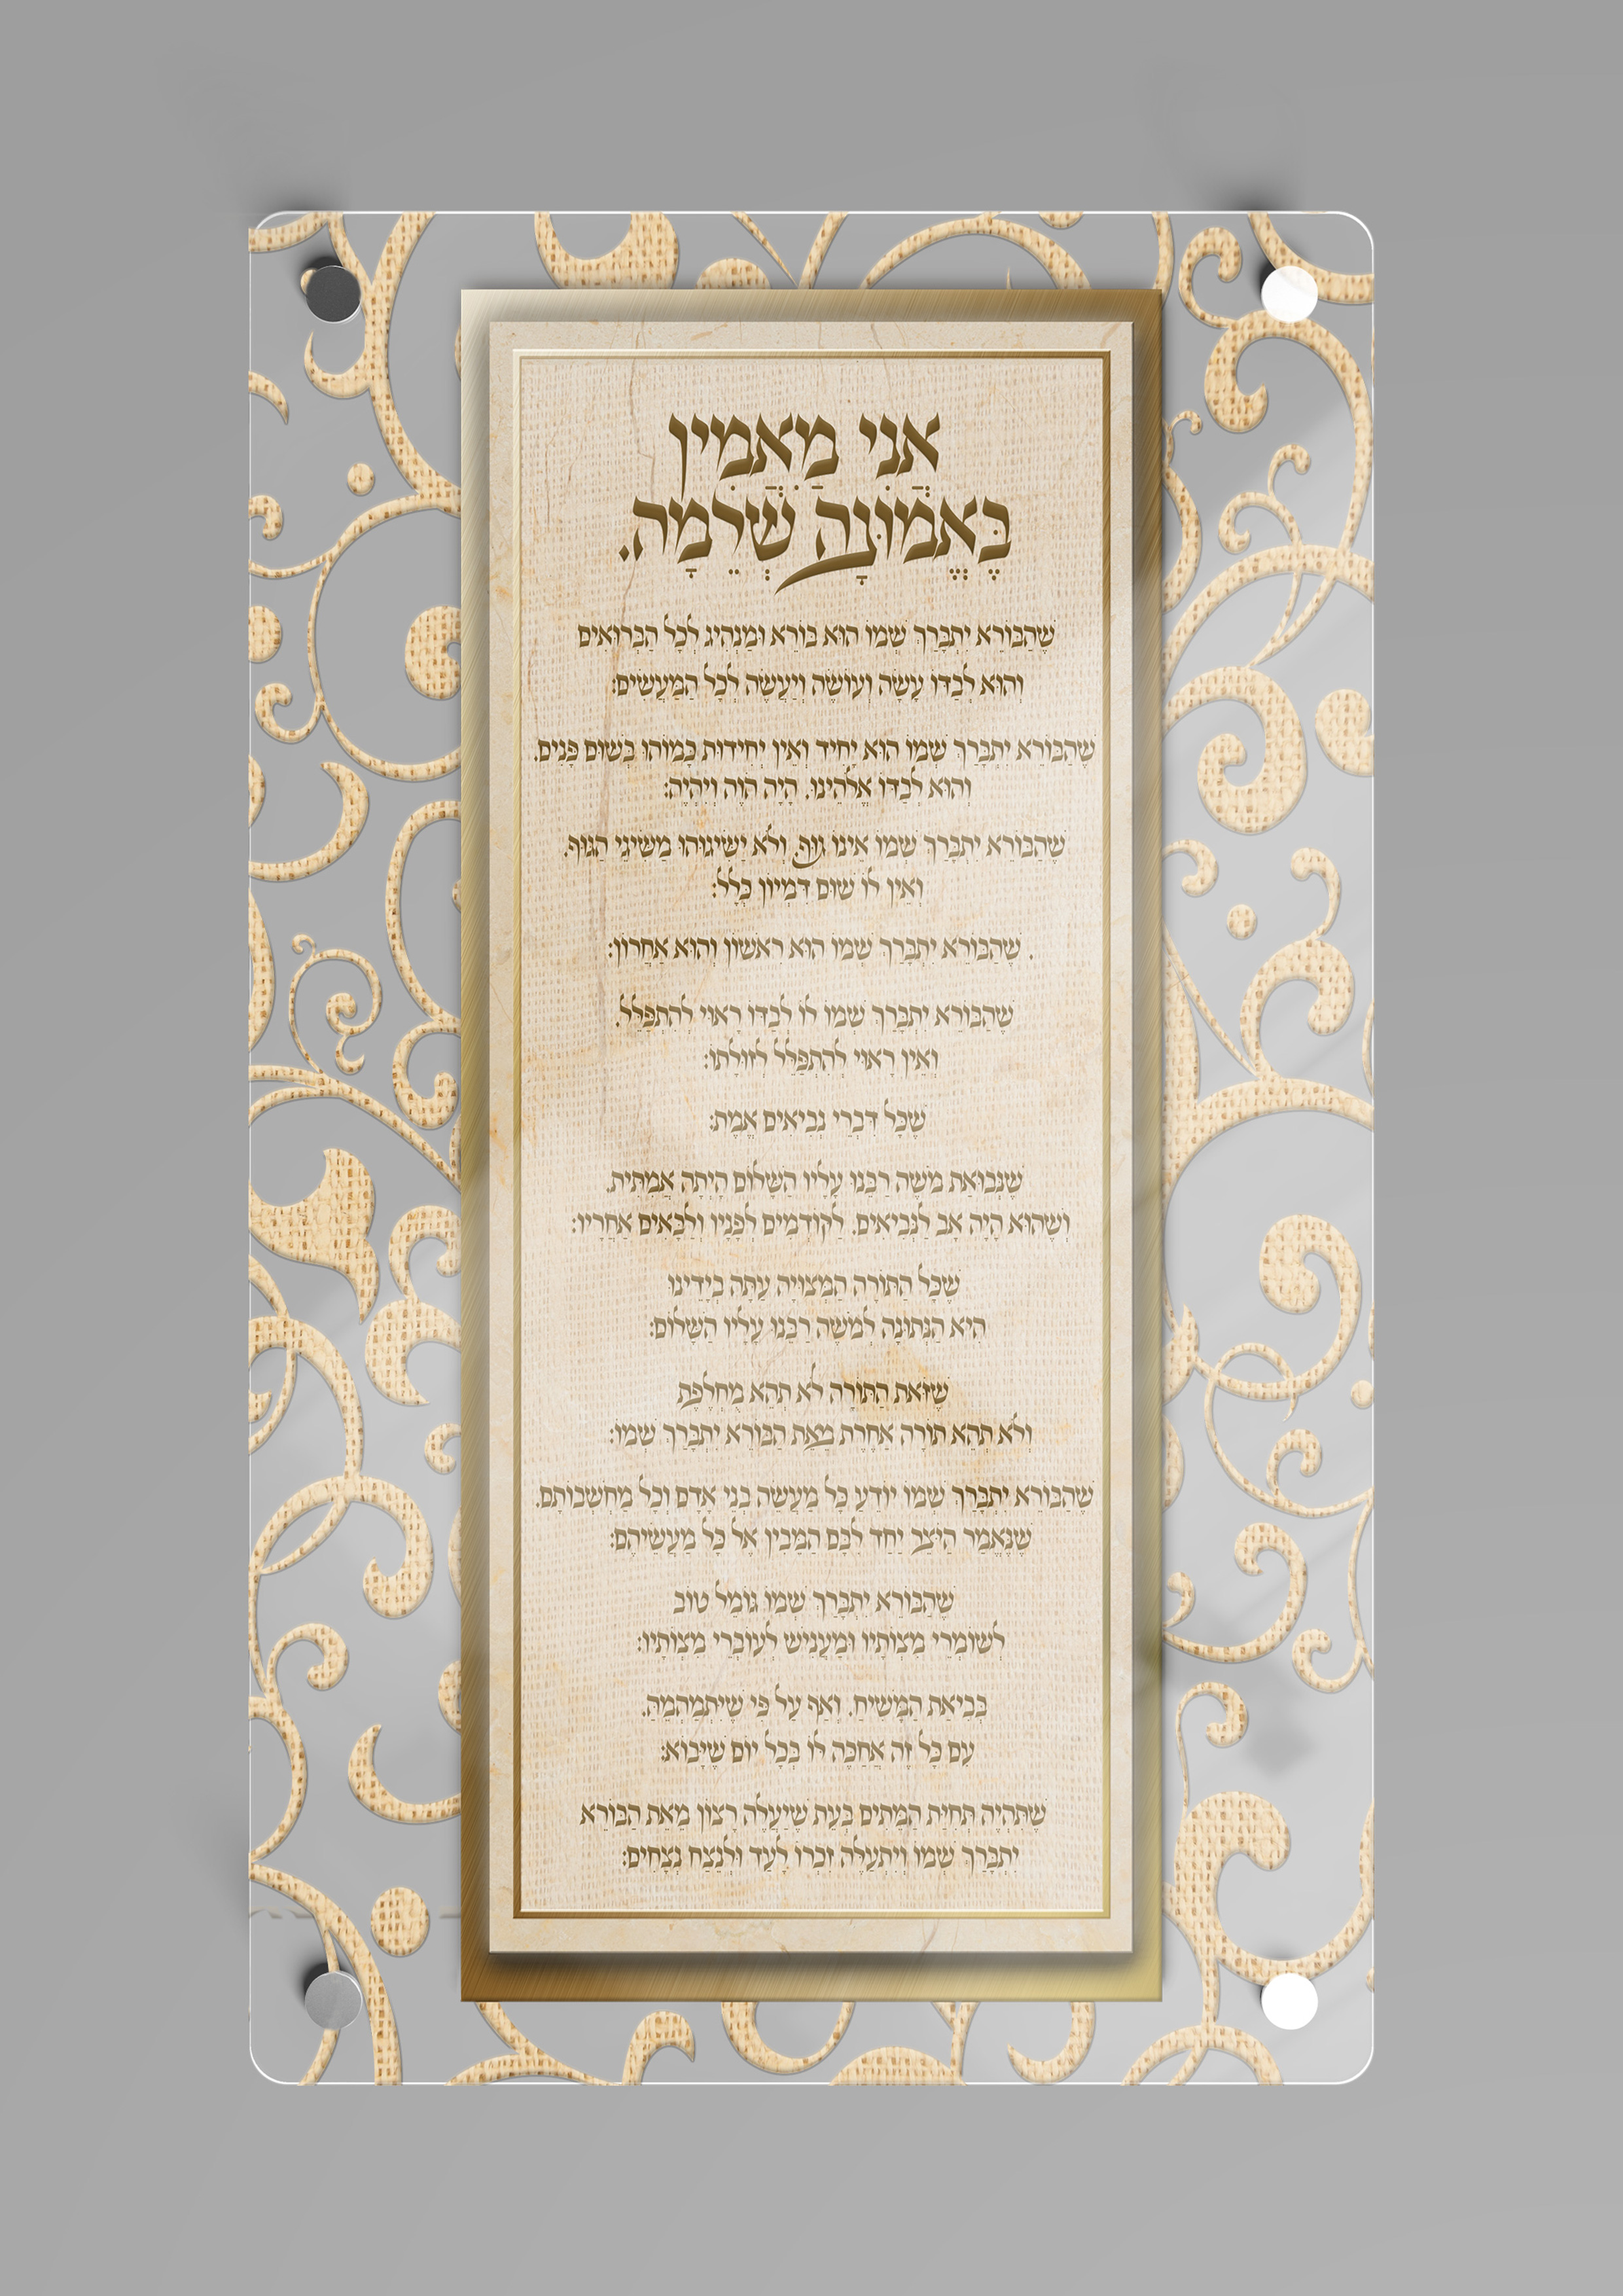 אֲנִי מַאֲמִין
בֶּאֱמוּנָה שְׁלֵמָה.
שֶׁהַבּוֹרֵא יִתְבָּרַךְ שְׁמוֹ הוּא בּוֹרֵא וּמַנְהִיג לְכָל הַבְּרוּאִים
וְהוּא לְבַדּוֹ עָשָׂה וְעוֹשֶׂה וְיַעֲשֶׂה לְכָל הַמַּעֲשִׂים:
שֶׁהַבּוֹרֵא יִתְבָּרַךְ שְׁמוֹ הוּא יָחִיד וְאֵין יְחִידוּת כָּמוֹהוּ בְּשׁוּם פָּנִים.
וְהוּא לְבַדּוֹ אֱלֹהֵינוּ. הָיָה הֹוֶה וְיִהְיֶה:
שֶׁהַבּוֹרֵא יִתְבָּרַךְ שְׁמוֹ אֵינוֹ גוּף. וְלֹא יַשִּׂיגוּהוּ מַשִּׂיגֵי הַגּוּף.
וְאֵין לוֹ שׁוּם דִּמְיוֹן כְּלָל:
. שֶׁהַבּוֹרֵא יִתְבָּרַךְ שְׁמוֹ הוּא רִאשׁוֹן וְהוּא אַחֲרוֹן:
שֶׁהַבּוֹרֵא יִתְבָּרַךְ שְׁמוֹ לוֹ לְבַדּוֹ רָאוּי לְהִתְפַּלֵּל.
וְאֵין רָאוּי לְהִתְפַּלֵּל לְזוּלָתוֹ:
שֶׁכָּל דִּבְרֵי נְבִיאִים אֱמֶת:
שֶׁנְּבוּאַת מֹשֶׁה רַבֵּנוּ עָלָיו הַשָּׁלוֹם הָיְתָה אֲמִתִּית.
וְשֶׁהוּא הָיָה אָב לַנְּבִיאִים. לַקּוֹדְמִים לְפָנָיו וְלַבָּאִים אַחֲרָיו:
שֶׁכָּל הַתּוֹרָה הַמְּצוּיָה עַתָּה בְיָדֵינוּ
הִיא הַנְּתוּנָה לְמֹשֶׁה רַבֵּנוּ עָלָיו הַשָּׁלוֹם:
שֶׁזֹּאת הַתּוֹרָה לֹא תְהֵא מֻחְלֶפֶת
וְלֹא תְהֵא תוֹרָה אַחֶרֶת מֵאֵת הַבּוֹרֵא יִתְבָּרַךְ שְׁמוֹ:
שֶׁהַבּוֹרֵא יִתְבָּרַךְ שְׁמוֹ יוֹדֵעַ כָּל מַעֲשֵׂה בְנֵי אָדָם וְכָל מַחְשְׁבוֹתָם.
שֶׁנֶּאֱמַר הַיֹּצֵר יַחַד לִבָּם הַמֵּבִין אֶל כָּל מַעֲשֵׂיהֶם:
שֶׁהַבּוֹרֵא יִתְבָּרַךְ שְׁמוֹ גּוֹמֵל טוֹב
לְשׁוֹמְרֵי מִצְוֹתָיו וּמַעֲנִישׁ לְעוֹבְרֵי מִצְוֹתָיו:
בְּבִיאַת הַמָּשִׁיחַ. וְאַף עַל פִּי שֶׁיִּתְמַהְמֵהַּ.
עִם כָּל זֶה אֲחַכֶּה לּוֹ בְּכָל יוֹם שֶׁיָּבוֹא:
שֶׁתִּהְיֶה תְּחִיַּת הַמֵּתִים בְּעֵת שֶׁיַּעֲלֶה רָצוֹן מֵאֵת הַבּוֹרֵא
יִתְבָּרַךְ שְׁמוֹ וְיִתְעַלֶּה זִכְרוֹ לָעַד וּלְנֵצַח נְצָחִים: